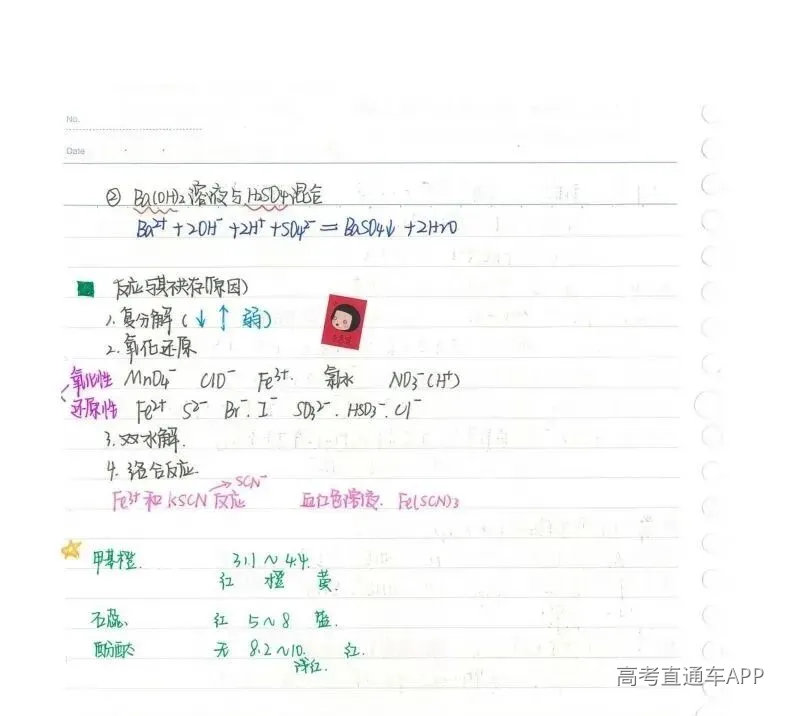 No.
Date
② Ba(OH)₂溶液与H₂SO₄混合
Ba²⁺+2OH⁻+2H⁺+SO₄²⁻=BaSO₄↓+2H₂O
反应与其共存(原因)
1.复分解(↓ ↑ 弱)
2.氧化还原
氧化性 MnO₄⁻ ClO⁻ Fe³⁺. 氯水 NO₃⁻(H⁺)
还原性 Fe²⁺ S²⁻ Br⁻. I⁻ SO₃²⁻. HSO₃⁻. Cl⁻
3.双水解.
4.络合反应.
Fe³⁺和KSCN反应 →SCN⁻ 血红色溶液. Fe(SCN)₃
甲基橙. 3.1~4.4.
红 橙 黄.
石蕊. 红 5~8 蓝.
酚酞 无 8.2~10. 红.
浅红.
高考直通车APP